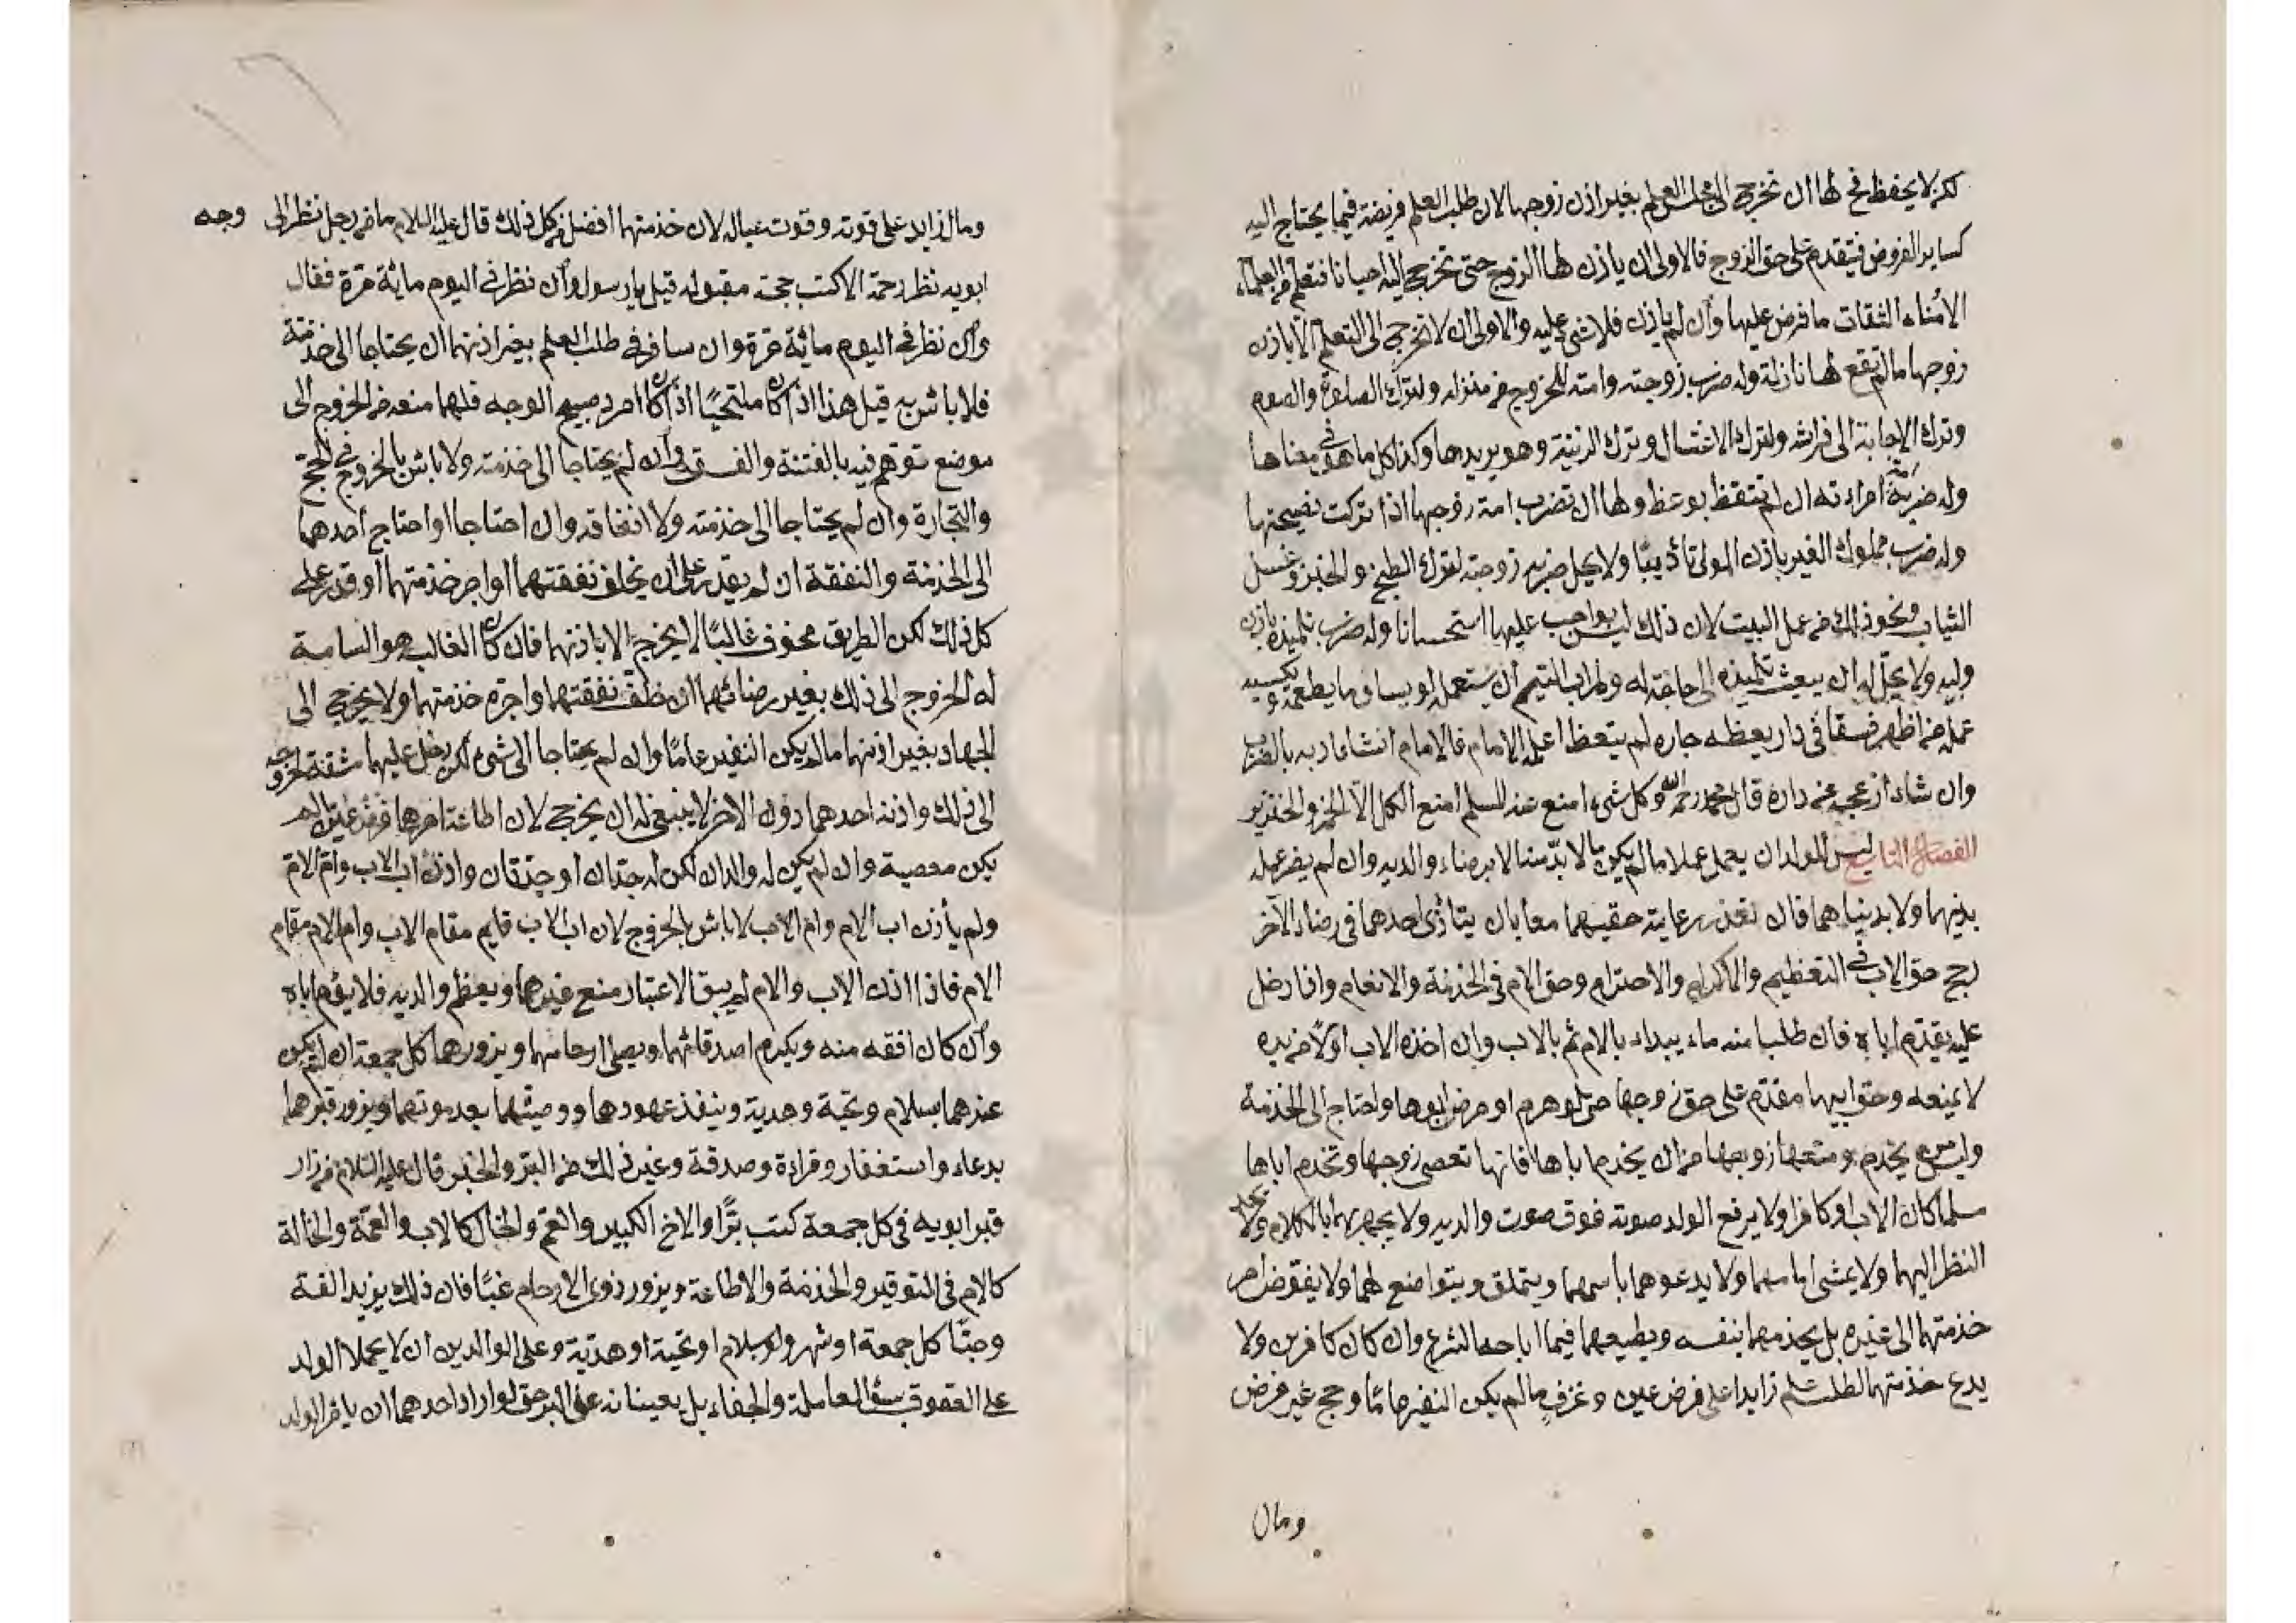 لكن لا يحفظ فح لها ان تخرج الى مجلس العلم بغير اذن زوجها لان طلب العلم فريضة فيما يحتاج اليه
كساير الفروض فيقدم على حق الزوج فالاولى ان ياذن لها الزوج حتى تخرج اليه احيانا فتتعلم من العلماء
الأمناء الثقات ما فرض عليها وان لم ياذن فلا شئ عليه والاولى ان لا تخرج الى التعلم الا باذن
زوجها مالم تقع لها نازلة وله ضرب زوجته وامته للخروج من منزله ولترك الصلوة والصوم
وترك الاجابة الى فراشه ولترك الاغتسال وترك الزينة وهو يريدها وكذا كل ما هو فى معناها
وله ضرب امة امراءته ان لم تتعظ بوعظ ولها ان تضرب امة زوجها اذا تركت نصيحتها
وله ضرب مملوك الغير باذن المولى تأديبًا ولا يحل ضربه زوجته لترك الطبخ والخبز وغسل
الثياب ونحو ذلك من عمل البيت لان ذلك ليس بواجب عليها استحسانا وله ضرب تلميذه باذن
وليه ولا يحل له ان يبعث تلميذه الى حاجة له ولرب اليتيم ان يستعمله لو يساوى ما يطعمه ويكسيه
عمله من اظهر فسقا فى دار يعظه جاره لم يتعظ اعلم الامام فالامام ان شاء ادبه بالضرب
وان شاء ازعجه عن داره قال محمد رحمه الله وكل شئ امنع عنه المسلم امنع الكل الا الخمر والخنزير
الفصل التاسع ليس للولد ان يعمل عملا ما لم يكن مما لا بد منه الا برضاء والديه وان لم يضر عمله
بدينهما ولا بدنياهما فان تعذر رعاية حقيهما معا بان يتأذى احدهما فى رضاء الآخر
رجح حق الاب فى التعظيم والاكرام والاحترام وحق الام فى الخدمة والانعام واذا دخل
عليه يقدم اباه فان طلبا منه ماء يبداء بالام ثم بالاب وان اخذه الاب اولًا من يده
لا يمنعه وحق ابيها مقدم على حق زوجها حتى لو هرم او مرض ابوها واحتاج الى الخدمة
وليس من يخدم ومنعها زوجها من ان يخدم اباها فانها تعصى زوجها وتخدم اباها
مسلما كان الاب او كافرا ولا يرفع الولد صوته فوق صوت والديه ولا يجهر لهما بالكلام ولا يحد
النظر اليهما ولا يمشى امامهما ولا يدعوهما باسمهما ويتملق ويتواضع لهما ولا يفوض امر
خدمتهما الى غيره بل يخدمهما بنفسه ويطيعهما فيما اباحه الشرع وان كان كافرين ولا
يدع خدمتهما لطلب علم زايدا على فرض عين وغزو مالم يكن النفير عامًا وحج غير فرض
ومال
ومال زايد على قوته وقوت عياله لان خدمتهما افضل من كل ذلك قال عليه السلام ما من رجل نظر الى وجه
ابويه نظر رحمة الا كتب حجة مقبولة قيل يا رسول وان نظر فى اليوم مائة مرة فقال
وان نظر فى اليوم مائة مرة وان سافر فى طلب العلم بغير اذنهما ان يحتاجا الى خدمته
فلا باس به قيل هذا اذا كان ملتحيًا اذا كان امرد صبيح الوجه فلهما منعه من الخروج الى
موضع توهم فيه بالفتنة والفسق وان لم يحتاجا الى خدمته ولا باس بالخروج فى الحج
والتجارة وان لم يحتاجا الى خدمته ولا انفاقه وان احتاجا او احتاج احدهما
الى الخدمة والنفقة ان لم يقدر على ان يخلف نفقتهما او اجر خدمتهما او قدر على
كل ذلك لكن الطريق مخوف غالبًا لا يخرج الا باذنهما فان كان الغالب هو السلامة
له الخروج الى ذلك بغير رضائهما ان خلف نفقتهما واجرة خدمتهما ولا يخرج الى
الجهاد بغير اذنهما مالم يكن النفير عامًا وان لم يحتاجا الى شئ لكن يدخل عليهما مشقة لخروجه
الى ذلك واذنه احدهما دون الاخر لا ينبغى له ان يخرج لان اطاعة امرهما فرض عين ما لم
يكن معصية وان لم يكن له والدان لكن له جدان او جدتان واذن اب الاب وام الام
ولم يأذن اب الام وام الاب لا باس بالخروج لان اب الاب قايم مقام الاب وام الام مقام
الام فاذا اذن الاب والام لم يبق الاعتبار منع غيرهما ويعظم والديه فلا يؤم اباه
وان كان افقه منه ويكرم اصدقائهما ويصل ارحامهما ويزورهما كل جمعة ان لم يكن
عندهما بسلام وتحية وهدية وينفذ عهودهما ووصيتهما بعد موتهما ويزور قبرهما
بدعاء واستغفار وقراءة وصدقة وغير ذلك من البر والخير قال عليه السلام من زار
قبر ابويه فى كل جمعة كتب برًا والاخ الكبير والعم والخال كالاب والعمة والخالة
كالام فى التوقير والخدمة والاطاعة ويزور ذوى الارحام غبًا فان ذلك يزيد الفة
وحبًا كل جمعة او شهر ولو بسلام او تحية او هدية وعلى الوالدين ان لا يحملا الولد
على العقوق بسوء المعاملة والجفاء بل يعينانه على البر حتى لو اراد احدهما ان يامر الولد